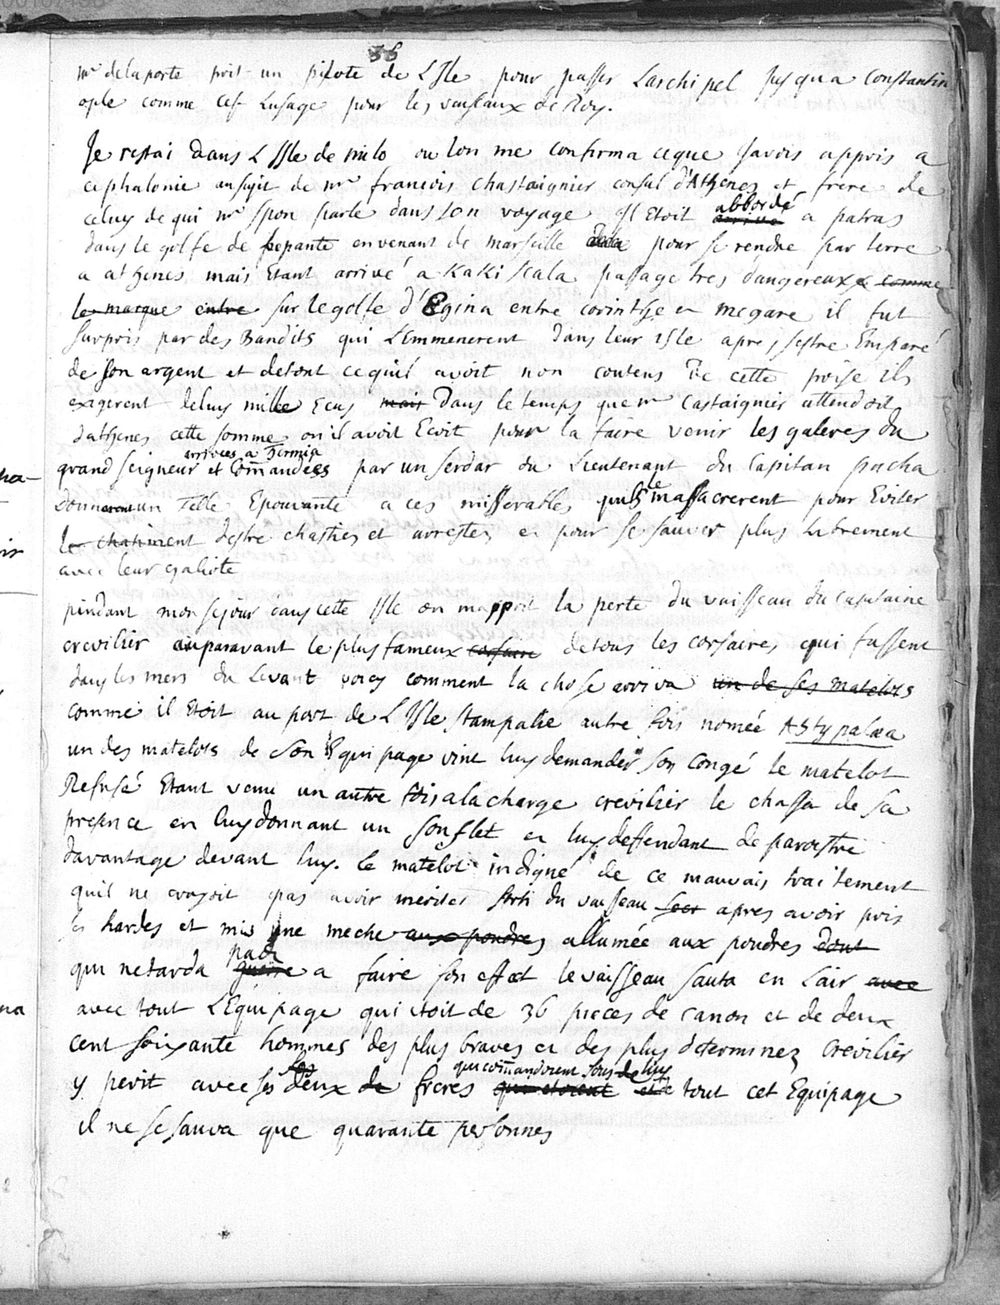 56
mr delaporte prit un pilote de L'Isle pour passer Larchipel jusqua Constantin
ople comme cest Lusage pour les vaisseaux de Roy.
Je restai dans L'Isle de milo ou lon me confirma ceque Javois appris a
cephalonie ausujet de mr francois chastaignier consul d'Athenes et frere de
celuy de qui mr spon parle dans son voyage Il Etoit abbordé a patras
dans le golfe de Lepante envenant de marseille pour se rendre par terre
a athenes mais Etant arrivé a Kaki scala passage tres dangereux comme
le marque entre sur le golfe d'Egina entre corinthe et megare il fut
surpris par des Bandits qui L'immenerent dans leur isle apres sestre Emparé
de son argent et detout cequil avoit non contens De cette prise ils
exigerent deluy mille Ecus mais Dans letemps que mr Castaignier attendoit
dathenes cette somme ou il avoit Ecrit pour la faire venir les galeres du
arrivées a hermia
grand seigneur et Comandées par un serdar ou Lieutenant du Capitan pacha
donnerent un telle Epouvante a ces misserables quils le massacrerent pour Eviter
le chatiment destre chastiés et arrestés et pour se sauver plus librement
avec leur galiote
pendant mon sejour dans cette Isle on mapprit la perte du vaisseau du Capitaine
crevilier auparavant le plus fameux corsaire detous les corsaires qui fussent
dans les mers du Levant voicy comment la chose arriva un de ses matelots
comme il Etoit au port de L'Isle stampalie autre fois nomée Astypalæa
un des matelots de son Equipage vint luy demander son Congé le matelot
Refusé Etant venu un autre fois alacharge crevilier le chassa de sa
presence en luy donnant un souflet et luy deffendant de paroistre
davantage devant luy. le matelot indigné de ce mauvais traitement
quil ne croyoit pas avoir merités sorti du vaisseau apres avoir pris
ses hardes et mis une meche aux poudres allumée aux poudres dont
qui netarda pas a faire son effet le vaisseau sauta en Lair avec
avec tout LEquipage qui etoit de 36 pieces de canon et de deux
cent soixante hommes des plus braves et des plus determinez Crevilier
qui comandoient sous luy
y perit avec ses deux de freres qui etoient et de tout cet Equipage
il ne se sauva que quarante personnes